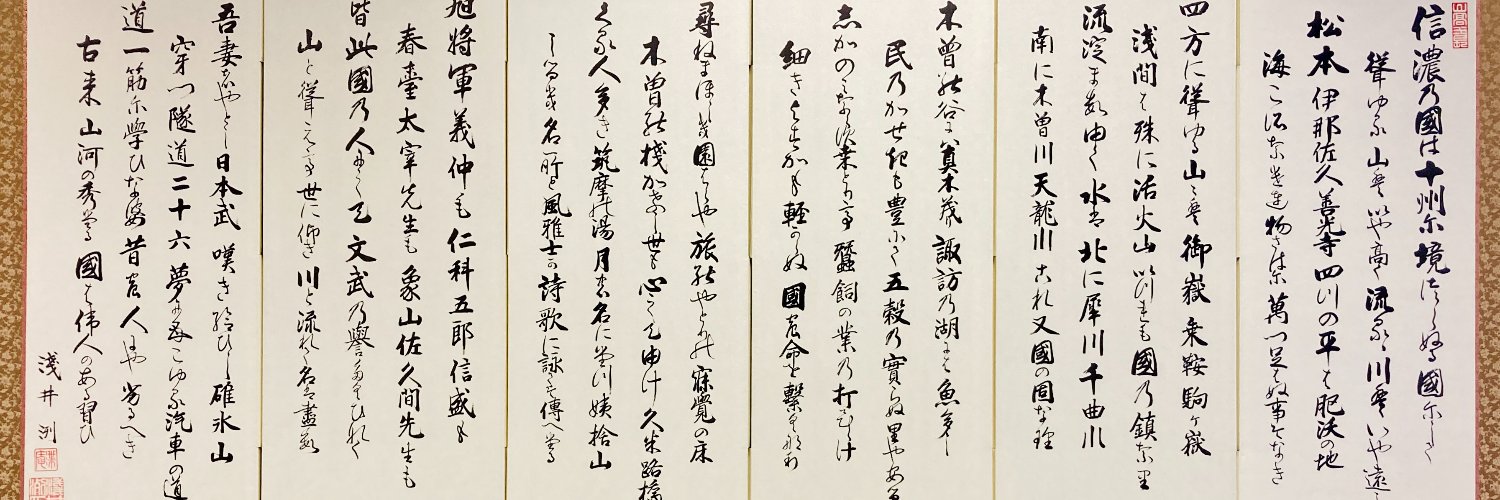 信濃乃國は十州尓境つらぬる國尓して
聳ゆる山はいや高く流るゝ川はいや遠し
松本伊那佐久善光寺四つの平は肥沃の地
海こそなけれ物さはに萬つ足らぬ事そなき
四方に聳ゆる山々は御嶽乗鞍駒ヶ嶽
浅間は殊に活火山いつれも國乃鎮なり
流れ淀ますゆく水は北に犀川千曲川
南に木曽川天龍川これ又國の固なり
木曽の谷には真木茂り諏訪乃湖には魚多し
民乃かせきも豊かにて五穀乃實らぬ里やある
志かのみならす桑とりて蠶飼の業乃打ひらけ
細きよすかも軽からぬ國の命を繋くなり
尋ねまほしき園はらや旅のやとりの寐覺の床
木曽の棧かけし世も心してゆけ久米路橋
くる人多き筑摩の湯月の名に立つ姨捨山
しるき名所と風雅士か詩歌に詠てそ傳へたる
旭将軍義仲も仁科五郎信盛も
春臺太宰先生も象山佐久間先生も
皆此國乃人にして文武乃譽たくひなく
山と聳えて世に仰き川と流れて名は盡す
吾妻はやとし日本武嘆き給ひし碓氷山
穿つ隧道二十六夢にもこゆる汽車の道
道一筋尓学ひなは昔の人にや劣るへき
古来山河の秀てたる國は偉人のある習ひ
淺井洌